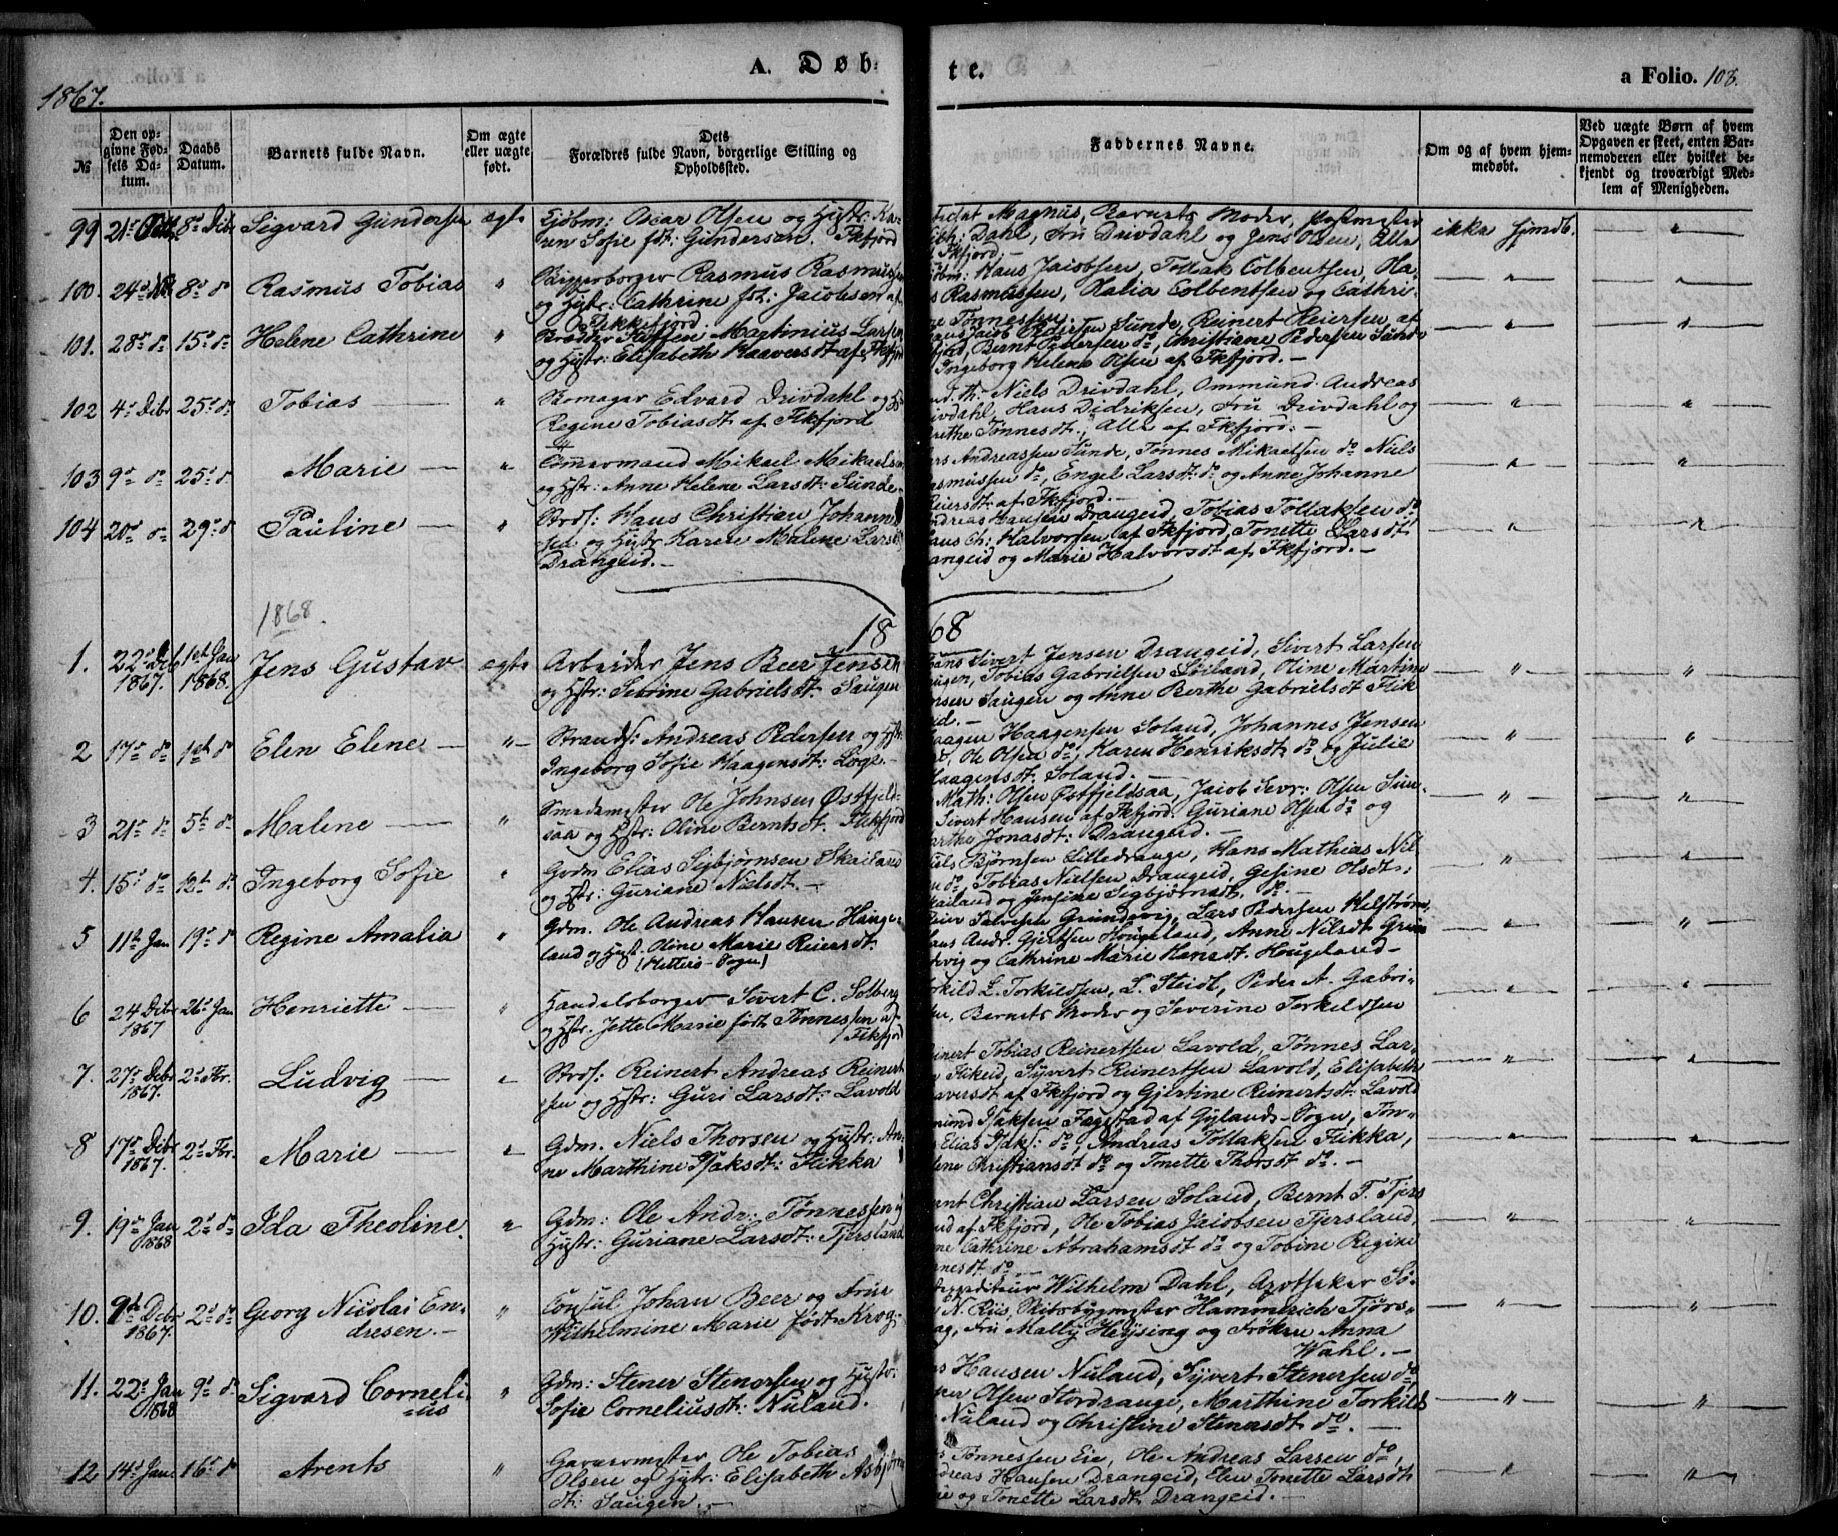 1867.
A. Døb-
te.
a Folio. 108.
No
Den op-
givne Fød-
sels Da-
tum.
Daabs
Datum.
Barnets fulde Navn.
Om ægte
eller uægte
født.
Dets
Forældres fulde Navn, borgerlige Stilling og
Opholdssted.
Faddernes Navne.
Om og af hvem hjem-
medøbt.
Ved uægte Børn af hvem
Opgaven er skeet, enten Bar-
nemoderen eller hvilket be-
kjendt og troværdigt Med-
lem af Menigheden.
99 21de 8de Dcbr Sigvard Gundersen ægte
Kjøbm: Oscar Olsen og Hustr. Ka-
ren Sofie fdt: Gundersen. Flkfjord
Magnus, Barnets Moder,
Dahl, Fru Drivdahl og Jens Olsen, Alle
Flkfjord,
ikke hjmdb.
100. 24de 8de do Rasmus Tobias "
Skipperborger Rasmus Rasmussen
og Hustr: Cathrine fdt: Jacobsen af
Flekkefjord.
Hans Jacobsen, Tollak Colbentsen, Ha-
Rasmussen, Halia Colbentsen og Cathri-
ne Tønnessen.
101. 28de do 15de do Helene Cathrine "
Martinius Larsen
og Hustr: Elisabeth Haaversdt af Flkfjord
Jacob Pedersen Sunde, Reinert Reiersen af
Bernt Pedersen do, Christiane Pedersen Sunde
Ingeborg Helene Olsen af Flkfjord. —
102 4de Dcbr 25de do Tobias "
Skomager Edvard Drivdahl og
Regine Tobiasdt af Flkfjord
Niels Drivdahl, Ommund Andreas
Hans Didriksen, Fru Drivdahl og
Tønnesdt., Alle af Flkfjord: —
103 9de do 25de do Marie "
Tømmermand Mikael Mikaelsen
og Hstr: Anne Helene Larsdt: Sunde
Andreassen Sunde, Tønnes Mikaelsen do Niels
Rasmussen do, Engel Larsdt do og Anne Johanne
Reiersdt af Flkfjord. —
104 20de do 29de do Pauline "
Strds: Hans Christian Johanne-
sen og Hustr Karen Malene Larsdt
Drangeid. —
Andreas Hansen Drangeid, Tobias Tollaksen do
Ch: Halvorsen af Flkfjord, Tonette Larsdt
Drangeid og Marie Halvorsdt af Flkfjord. —
1868.
1868
1. 22de Dcb 1867. 1st Jan 1868. Jens Gustav ægte
Arbeider Jens Beer Jensen
og Hstr: Serine Gabrielsdt: Saugen
Sivert Jensen Drangeid, Sivert Larsen
Saugen, Tobias Gabrielsen Loiland, Oline Martine
Jensen Saugen og Anne Berthe Gabrielsdt Flik
eid. —
2 17de do 1st do Elen Elene "
Strands: Andreas Pedersen og Hstr
Ingeborg Sofie Haagensdt: Loge. —
Haagen Haagensen Soland, Johannes Jensen
Ole Olsen do, Karen Henriksdt do og Julie
Haagensdt: Soland. —
3 21de do 5te do Malene "
Smedemester Ole Johnsen Østfjeld-
saa og Hstr: Oline Berntsdt. Flkfjord
Math: Olsen Østfjeldsaa, Jacob Sevr: Olsen Sun-
Sivert Hansen af Flkfjord, Guriane Olsen do og
Marthe Jonasdt: Drangeid. —
4. 15de do 12te do Ingeborg Sofie "
Grdm Elias Sigbjørnsen Skailand
og Hstr: Guriane Nielsdt. —
Niels Bjørnsen Lilledrange, Hans Mathias Nil-
sen do, Tobias Nielsen Drangeid, Gesine Olsdt:
Skailand og Jensine Sigbjørnsdt. do. —
5 11te Jan 19de do Regine Amalia "
Gdm. Ole Andreas Hansen Hauge-
land og Hust. Oline Marie Reiersdt.
(Hitterø-Sogn)
Reier Salvesen Grundevig, Lars Pedersen Helstrøm,
Hans Andr. Gjertsen Hougeland, Anne Nilsdt Grun
devig og Cathrine Marie Hansdt. Hougeland —
6 24 Dcbr 1867 26de Jan Henriette "
Handelsborger Sivert C. Solberg
og Hstr. Jette Marie født Tønnessen af
Flkfjord
Torkild L. Torkildsen, L. Steidt, Peder A. Gabri-
elsen, Barnets Moder og Severine Torkildsen
7. 27de Dcbr 1867. 2de Fbr. Ludvig "
Strds: Reinert Andreas Reinert
sen og Hstr: Guri Larsdt: Lavold
Reinert Tobias Reinertsen Lavold, Tønnes Lar-
sen Flikeid, Syvert Reinertsen Lavold, Elisabeth
Haaversdt af Flkfjord og Gjertine Reinertsdt: Lavold
8 17de Dcbr 1867. 2de Fbr. Marie "
Gdm. Niels Thorsen og Hustr: An-
ne Marthine Isaksdt: Flikka
Isaksen Fagestad af Gylands-Sogn, Tøn-
nes Elias Isaks: do, Andreas Tollaksen Flikka,
Christiansdt do og Tonette Thorsdt do. —
9. 19de Jan 1868 2de do Ida Theoline. "
Gdm: Ole Andr: Tønnessen og
Hustr: Guriane Larsdt: Tjersland
Bernt Christian Larsen Soland, Bernt T. Tjers
land af Flkfjord, Ole Tobias Jacobsen Tjersland,
Anne Cathrine Abrahamsdt do og Tobine Regine
Tønnesdt do. —
10. 9de Dcbr 1867. 2de do Georg Nicolai En-
dresen. — "
Consul Johan Beer og Frue
Wilhelmine Marie født Krog. —
Postexpediteur Wilhelm Dahl, Apotheker Sø-
ren N. Riis, Skibsbygmester Hammerich Tjørs-
vaag, Fru Mally Heysing og Frøken Anna
Wahl. —
11. 22de Jan 1868 9de do Sigvard Corneli-
us "
Gdm: Stener Stenersen og Hustr:
Sofie Corneliusdt: Nuland.
Hansen Nuland, Syvert Stenersen do,
Olsen Stordrange, Marthine Torkilds
Nuland og Christine Stenersdt do. —
12. 14de Jan. 16de do Arents "
Garvermester Ole Tobias
Olsen og Hstr: Elisabeth Asbjørns
dt: Saugen. —
Tønnessen Eie, Ole Andreas Larsen do,
Andreas Hansen Drangeid, Elen Tonette Larsdt
Eie og Tonette Larsdt Drangeid. —